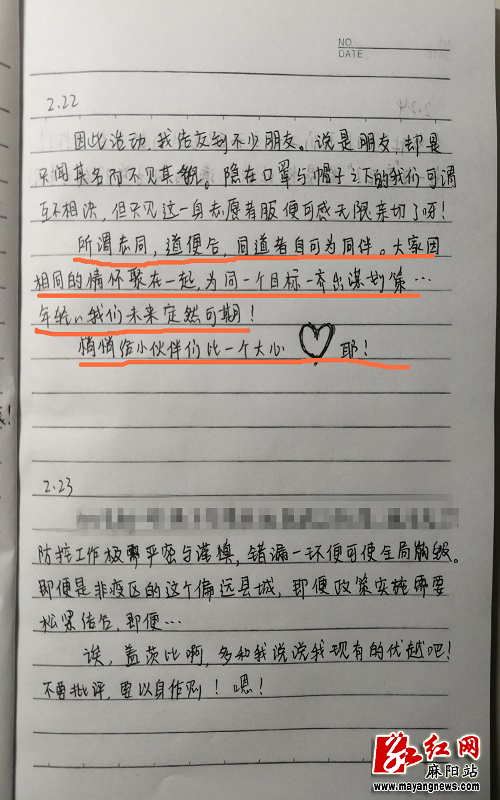 NO
DATE
2.22
因此活动,我结交到不少朋友。说是朋友,却是
只闻其名而不见其貌。隐在口罩与帽子之下的我们可谓
互不相识,但只见这一身志愿者服便可感无限亲切了呀!
所谓志同,道便合,同道者自可为同伴。大家因
相同的情怀聚在一起,为同一个目标一齐出谋划策…
年轻的我们未来定然可期!
悄悄给小伙伴们比一个大心 耶!
2.23
防控工作极需严密与谨慎,错漏一环便可使全局崩毁。
即便是非疫区的这个偏远县城,即便政策实施需要
松紧结合,即便…
诶,盖茨比啊,多和我说说我现有的优越吧!
不要批评,要以身作则!嗯!
红网
麻阳站
www.mayangnews.com